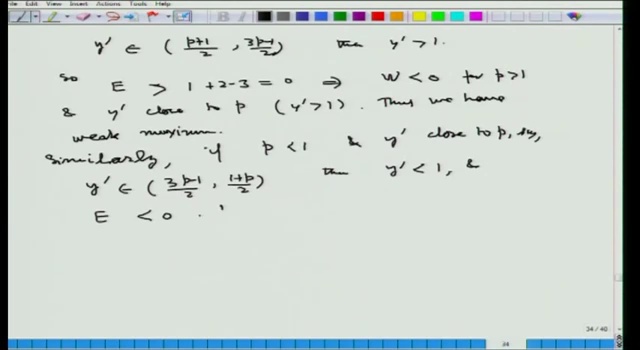 File Edit View Insert Actions Tools Help
y' ∈ ( p+1/2 , 3p-1/2 ) then y' > 1.
so E > 1 + 2 - 3 = 0 ⇒ W < 0 for p > 1
& y' close to p ( y' > 1 ) . Thus we have
weak maximum.
Similarly, if p < 1 & y' close to p, say,
y' ∈ ( 3p-1/2 , 1+p/2 ) then y' < 1, &
E < 0 .
34 / 40
34